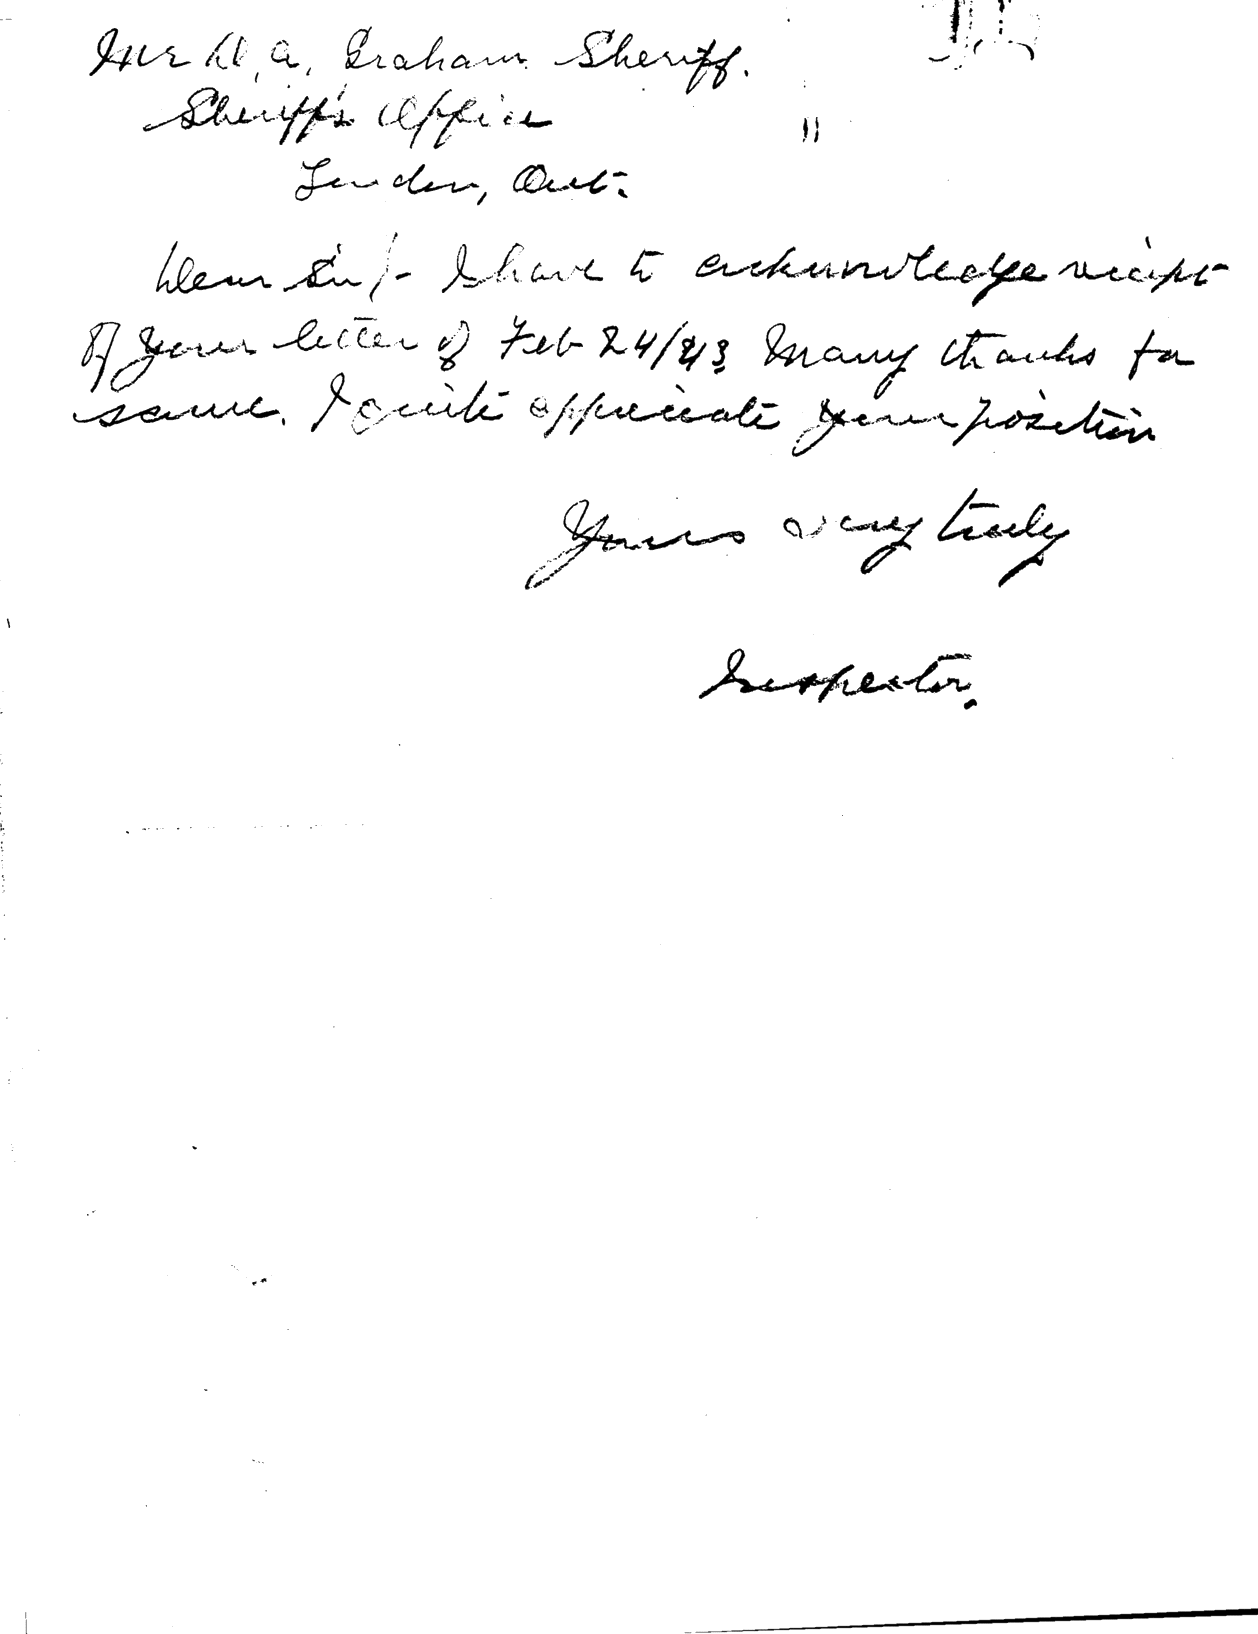 Mr D. A. Graham Sheriff.
Sheriff's Office
London, Ont.
Dear Sir/- I have to acknowledge reciept
of your letter of Feb 24/43 Many thanks for
same. I quite appreciate your position
Yours very truly
Inspector.